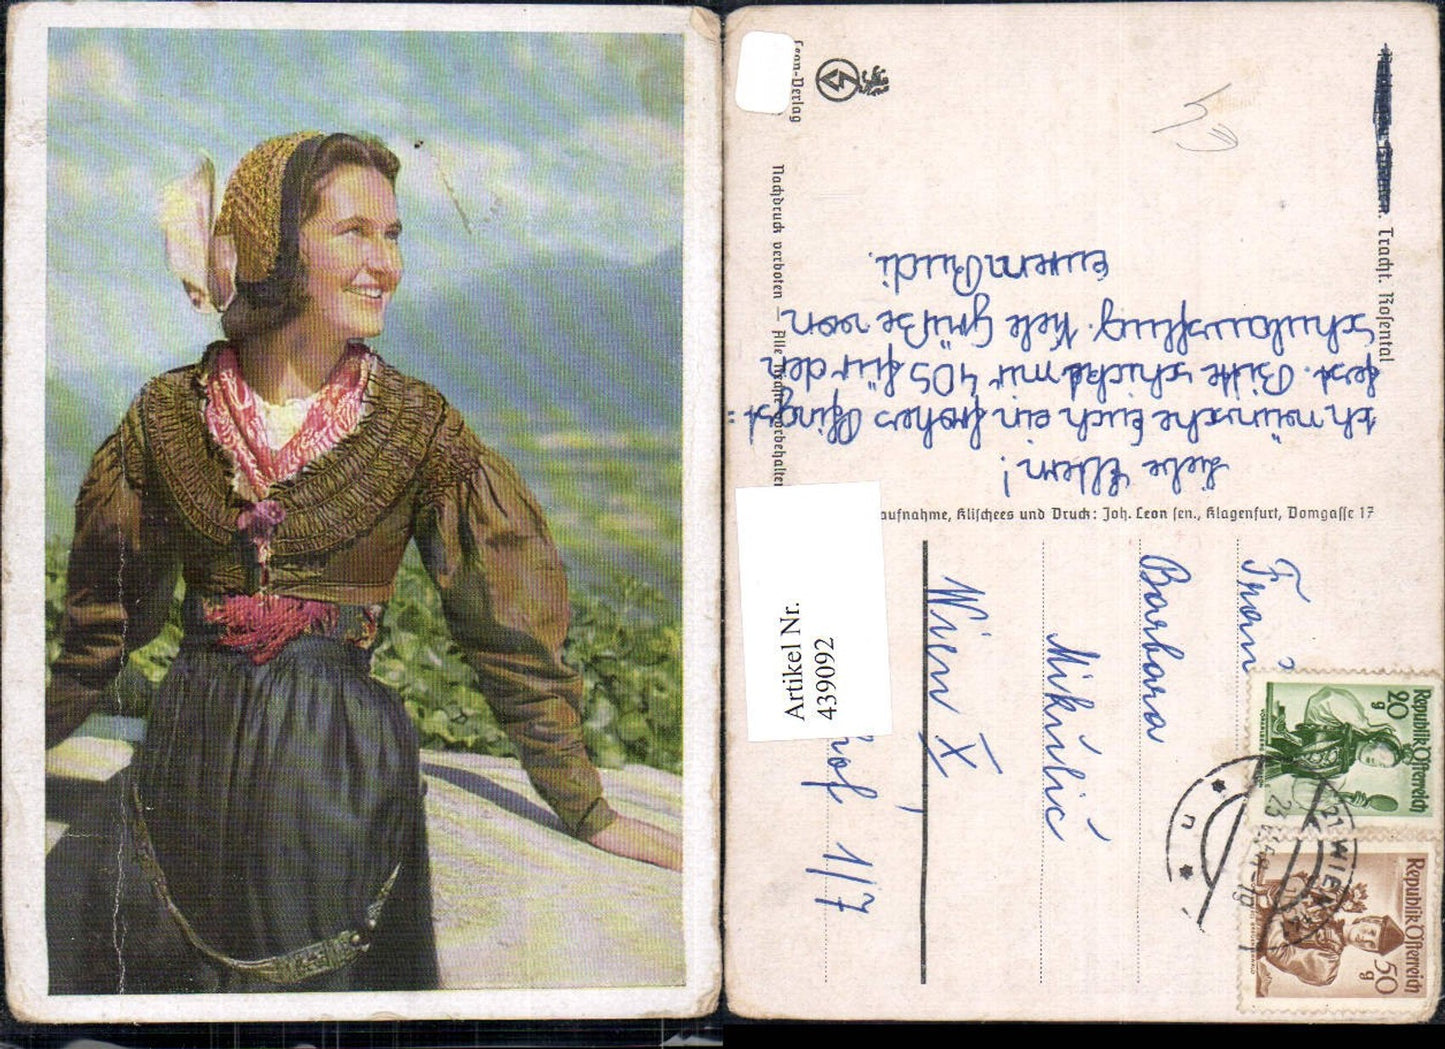 Leon-Verlag
Nachdruck verboten — Alle Rechte vorbehalten
Tracht. Rosental
Liebe Eltern!
Ich wünsche Euch ein frohes Pfingst=
fest. Bitte schickt mir 40S für den
Schulausflug. Viele Grüße von
Eurem Rudi.
aufnahme, Klischees und Druck: Joh. Leon sen., Klagenfurt, Domgasse 17
Frau
Barbara
Mikulic
Wien X,
hof 1/7
Artikel Nr.
439092
Republik Österreich
20
g
Republik Österreich
50
g
21 WIEN